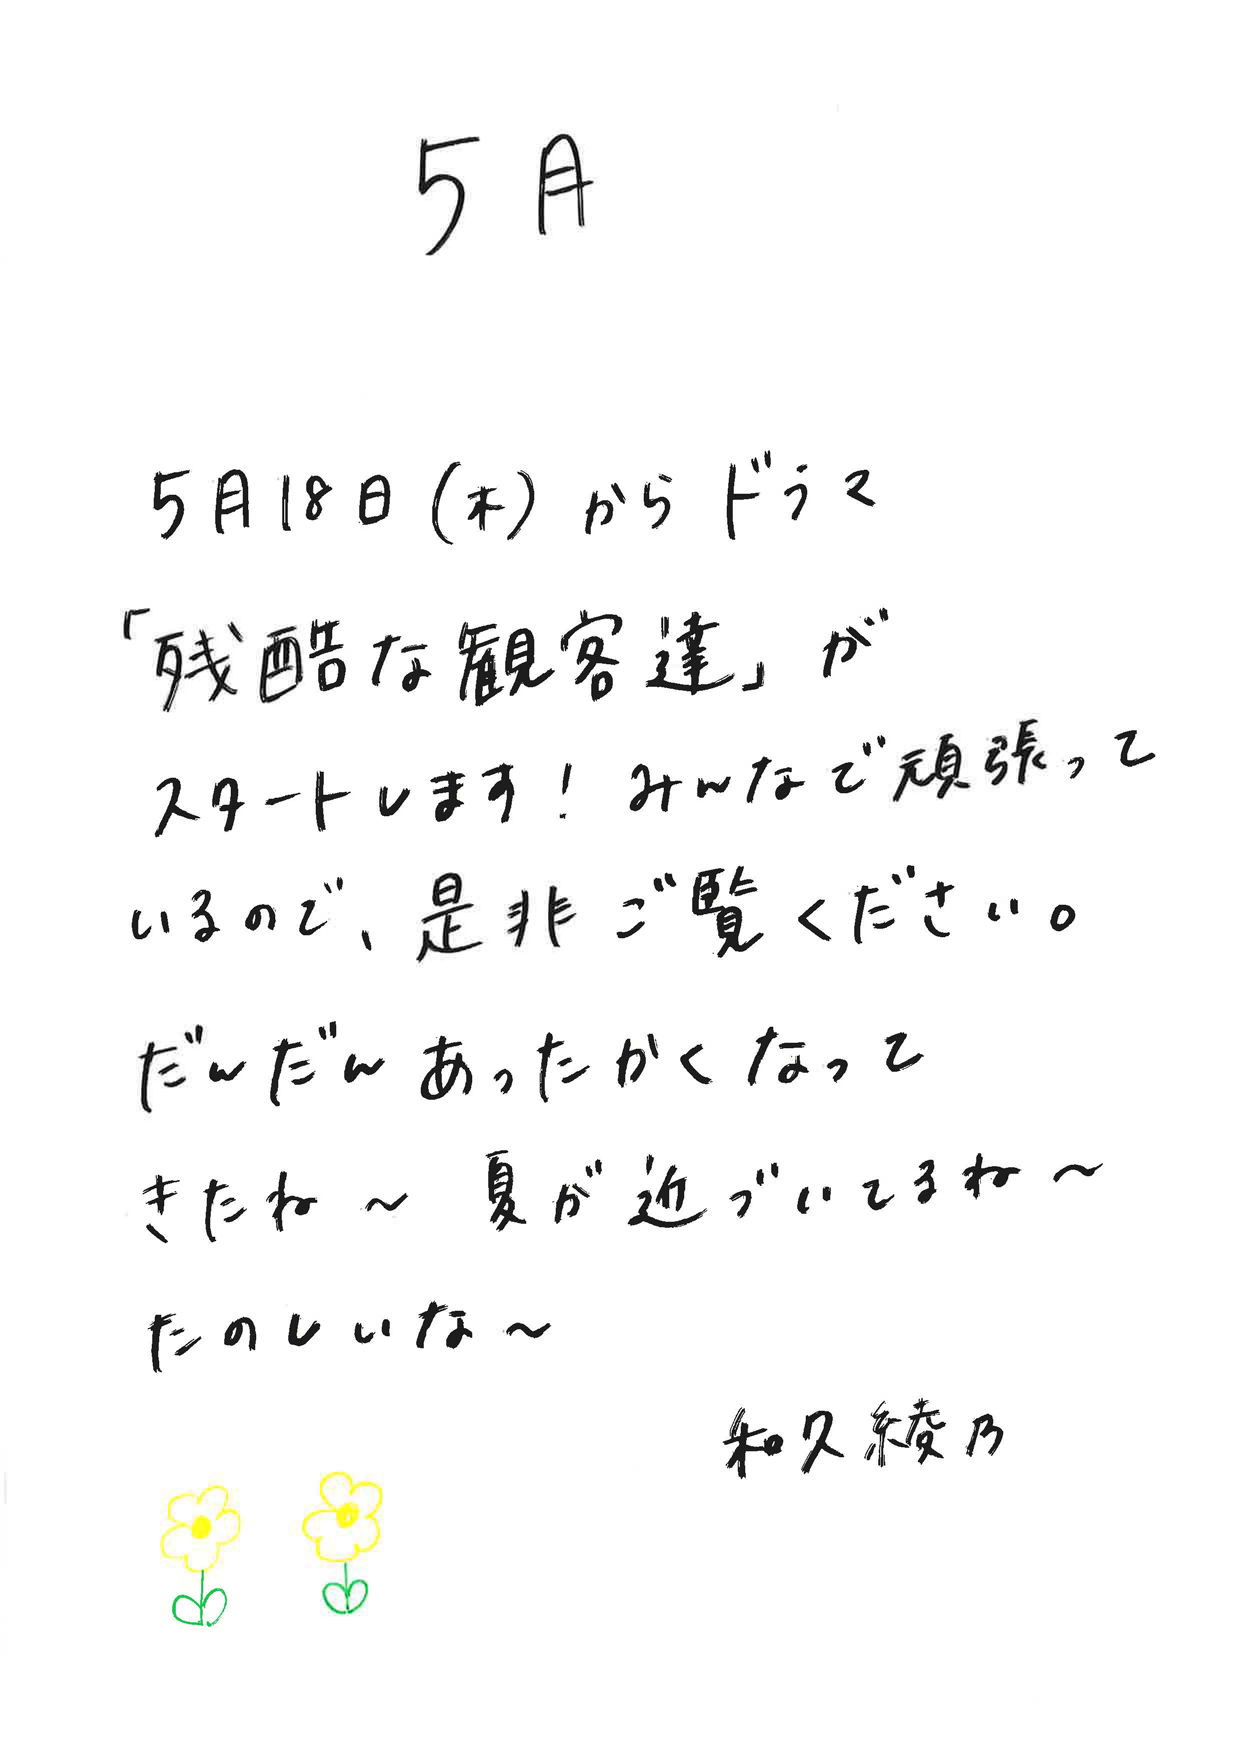 5月
5月18日(木)からドラマ
「残酷な観客達」が
スタートします！みんなで頑張って
いるので、是非ご覧ください。
だんだんあったかくなって
きたね～ 夏が近づいてるね～
たのしいな～
和久綾乃